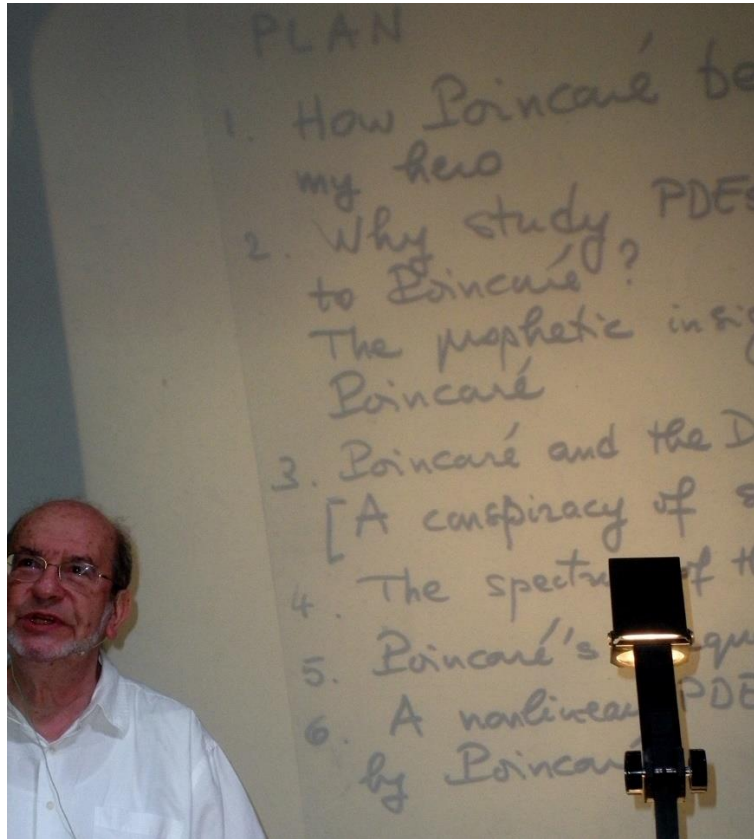 PLAN
1. How Poincaré be
my hero
2. Why study PDES
to Poincaré?
The prophetic insig
Poincaré
3. Poincaré and the D
[A conspiracy of s
4. The spectru of th
5. Poincaré's equ
6. A nonlinear PDE
by Poincaré